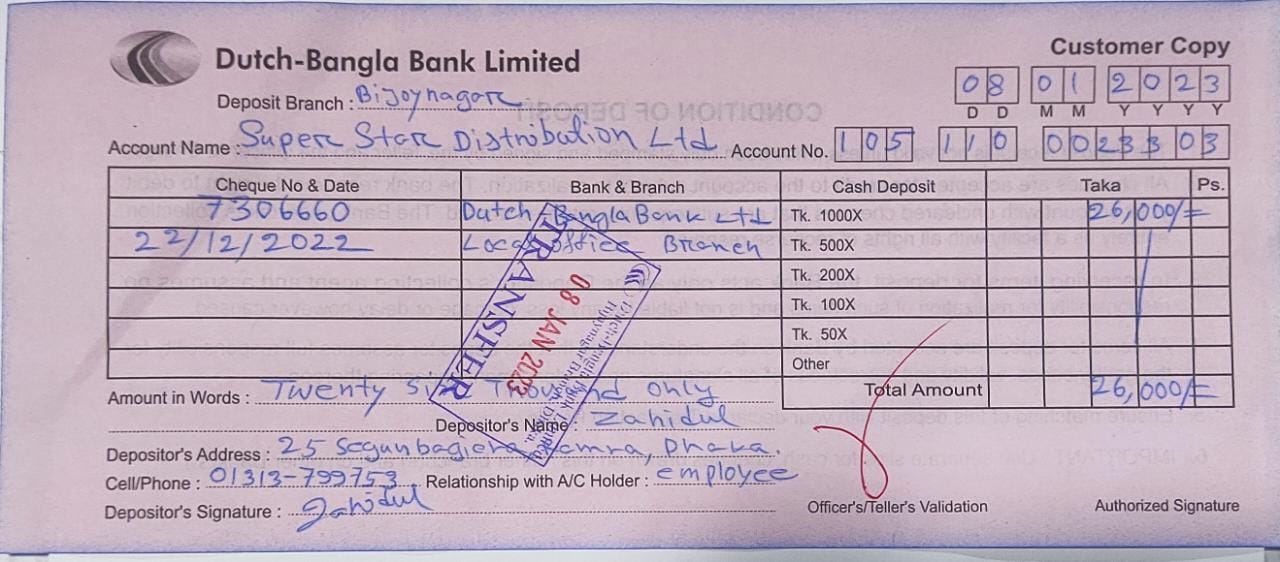 Customer Copy
Dutch-Bangla Bank Limited
08 01 2023
D D M M Y Y Y Y
Deposit Branch : Bijoynagar
Account Name : Super Star Distribution Ltd Account No. 105 110 0023303
Cheque No & Date Bank & Branch Cash Deposit Taka Ps.
7306660 Dutch-Bangla Bank Ltd Tk. 1000X 26,000/=
22/12/2022 Local Office Branch Tk. 500X
Tk. 200X
Tk. 100X
Tk. 50X
Other
TRANSFER
08 JAN 2023
Dutch-Bangla Bank Limited
Total Amount 26,000/=
Amount in Words : Twenty Six Thousand Only
Depositor's Name : Zahidul
Depositor's Address : 25 Segunbagicha, Dhaka.
Cell/Phone : 01313-799753 Relationship with A/C Holder : employee
Depositor's Signature : Zahidul
Officer's/Teller's Validation Authorized Signature